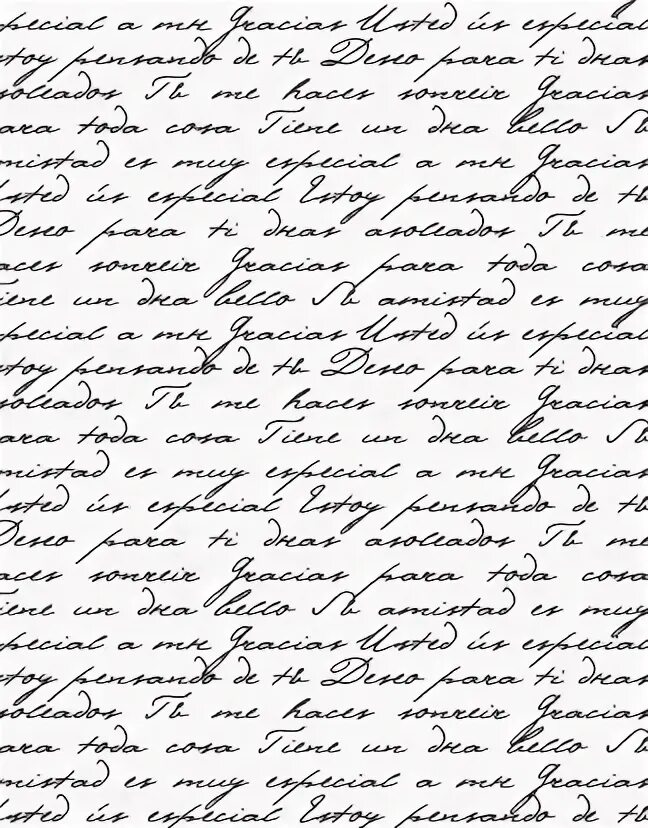 pecial a mн Gracias Usted ús especial
stoy pensando de tъ Deseo para ti dнas
soleados Tъ me haces sonreir Gracias
ara toda cosa Tiene un dнa bello Sъ
mistad es muy especial a mн Gracias
Usted ús especial Estoy pensando de tъ
Deseo para ti dнas asoleados Tъ me
aces sonreir Gracias para toda cosa
iene un dнa bello Sъ amistad es muy
special a mн Gracias Usted ús especial
stoy pensando de tъ Deseo para ti dнas
soleados Tъ me haces sonreir Gracias
ara toda cosa Tiene un dнa bello Sъ
mistad es muy especial a mн Gracias
Usted ús especial Estoy pensando de tъ
Deseo para ti dнas asoleados Tъ me
aces sonreir Gracias para toda cosa
iene un dнa bello Sъ amistad es muy
special a mн Gracias Usted ús especial
stoy pensando de tъ Deseo para ti dнas
soleados Tъ me haces sonreir Gracias
ara toda cosa Tiene un dнa bello Sъ
mistad es muy especial a mн Gracias
Usted ús especial Estoy pensando de tъ